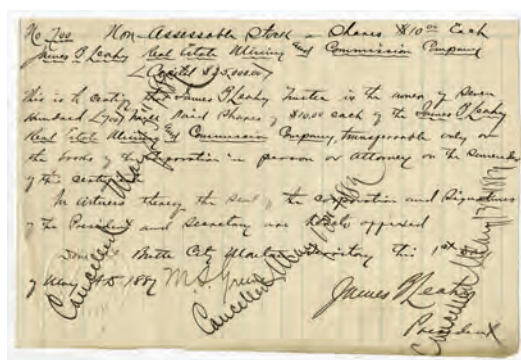 No 700 Non-Assessable Stock - Shares $10 00 Each
James B Leahy Real Estate Mining and Commission Company
Capital $25,000.00
This is to certify that James B Leahy Trustee is the owner of Seven
Hundred (700) Paid Shares of $10.00 each of the James B Leahy
Real Estate Mining and Commission Company, transferable only on
the books of the Corporation in person or attorney on the surrender
of this
In witness the seal of the corporation and signatures
of the President and Secretary are
Butte City Montana Territory this 1st day
of May A D 1887 M.S.
James B Leahy
President
Cancelled
Cancelled
Cancelled